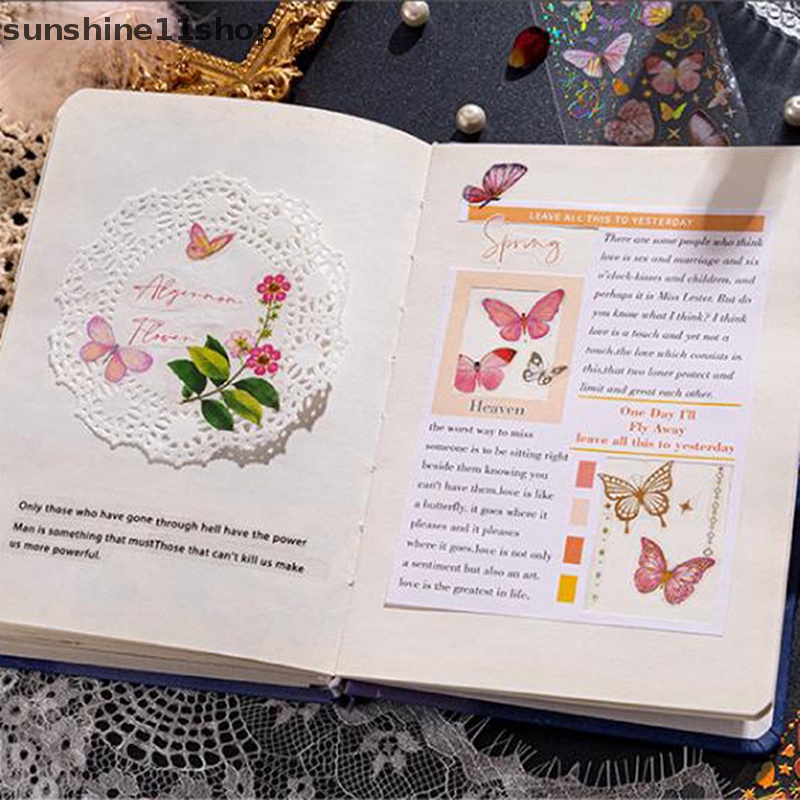 sunshine11shop
Algernon
Flower
Only those who have gone through hell have the power
Man is something that mustThose that can't kill us make
us more powerful.
LEAVE ALL THIS TO YESTERDAY
Spring
Heaven
the worst way to miss
someone is to be sitting right
beside them knowing you
can't have them.love is like
a butterfly. it goes where it
pleases and it pleases
where it goes.love is not only
a sentiment but also an art.
love is the greatest in life.
There are some people who think
love is sex and marriage and six
o'clock-kisses and children, and
perhaps it is Miss Lester. But do
you know what I think? I think
love is a touch and yet not a
touch.the love which consists in
this,that two loner protect and
limit and great each other.
One Day I'll
Fly Away
leave all this to yesterday